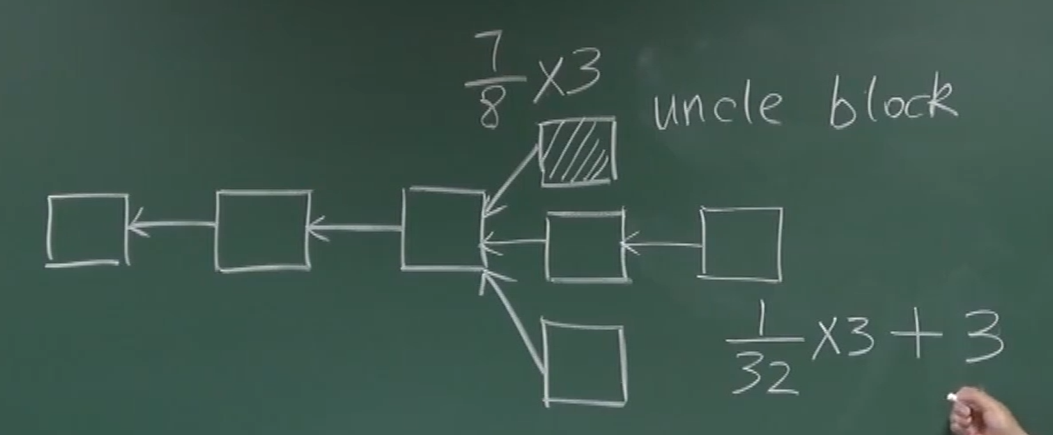 7/8 ×3
uncle block
1/32 ×3 + 3